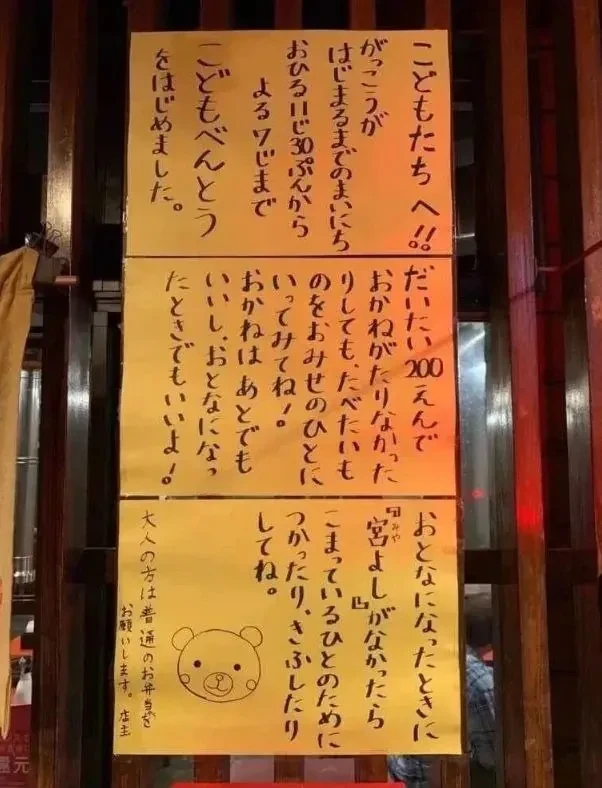 こどもたちへ!!
がっこうが
はじまるまでのまいにち
おひる11じ30ぷんから
よる7じまで
こどもべんとう
をはじめました。
だいたい200えんで
おかねがたりなかった
りしても、たべたいも
のをおみせのひとに
いってみてね!。
おかねは あとでも
いいし、おとなになっ
たときでもいいよ!。
おとなになったときに
『宮よし』がなかったら
みや
こまっているひとのために
つかったり、きふしたり
してね。
大人の方は普通のお弁当を
お願いします。店主
還元